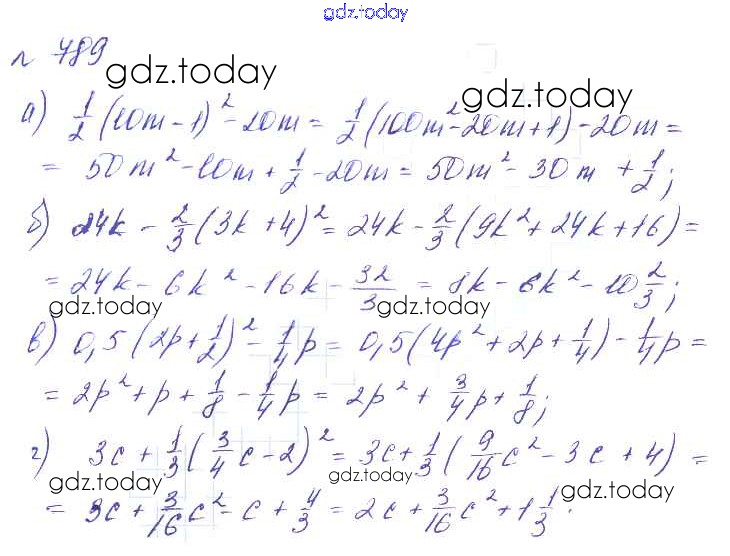 gdz.today
№ 789
gdz.today
gdz.today
а) 1/2 (10m - 1)² - 20m = 1/2 (100m² - 20m + 1) - 20m =
= 50m² - 10m + 1/2 - 20m = 50m² - 30m + 1/2;
б) 24k - 2/3 (3k + 4)² = 24k - 2/3 (9k² + 24k + 16) =
= 24k - 6k² - 16k - 32/3 = 8k - 6k² - 10 2/3;
gdz.today
gdz.today
в) 0,5 (2p + 1/2)² - 1/4 p = 0,5 (4p² + 2p + 1/4) - 1/4 p =
= 2p² + p + 1/8 - 1/4 p = 2p² + 3/4 p + 1/8;
г) 3c + 1/3 (3/4 c - 2)² = 3c + 1/3 (9/16 c² - 3c + 4) =
gdz.today
gdz.today
gdz.today
= 3c + 3/16 c² - c + 4/3 = 2c + 3/16 c² + 1 1/3.